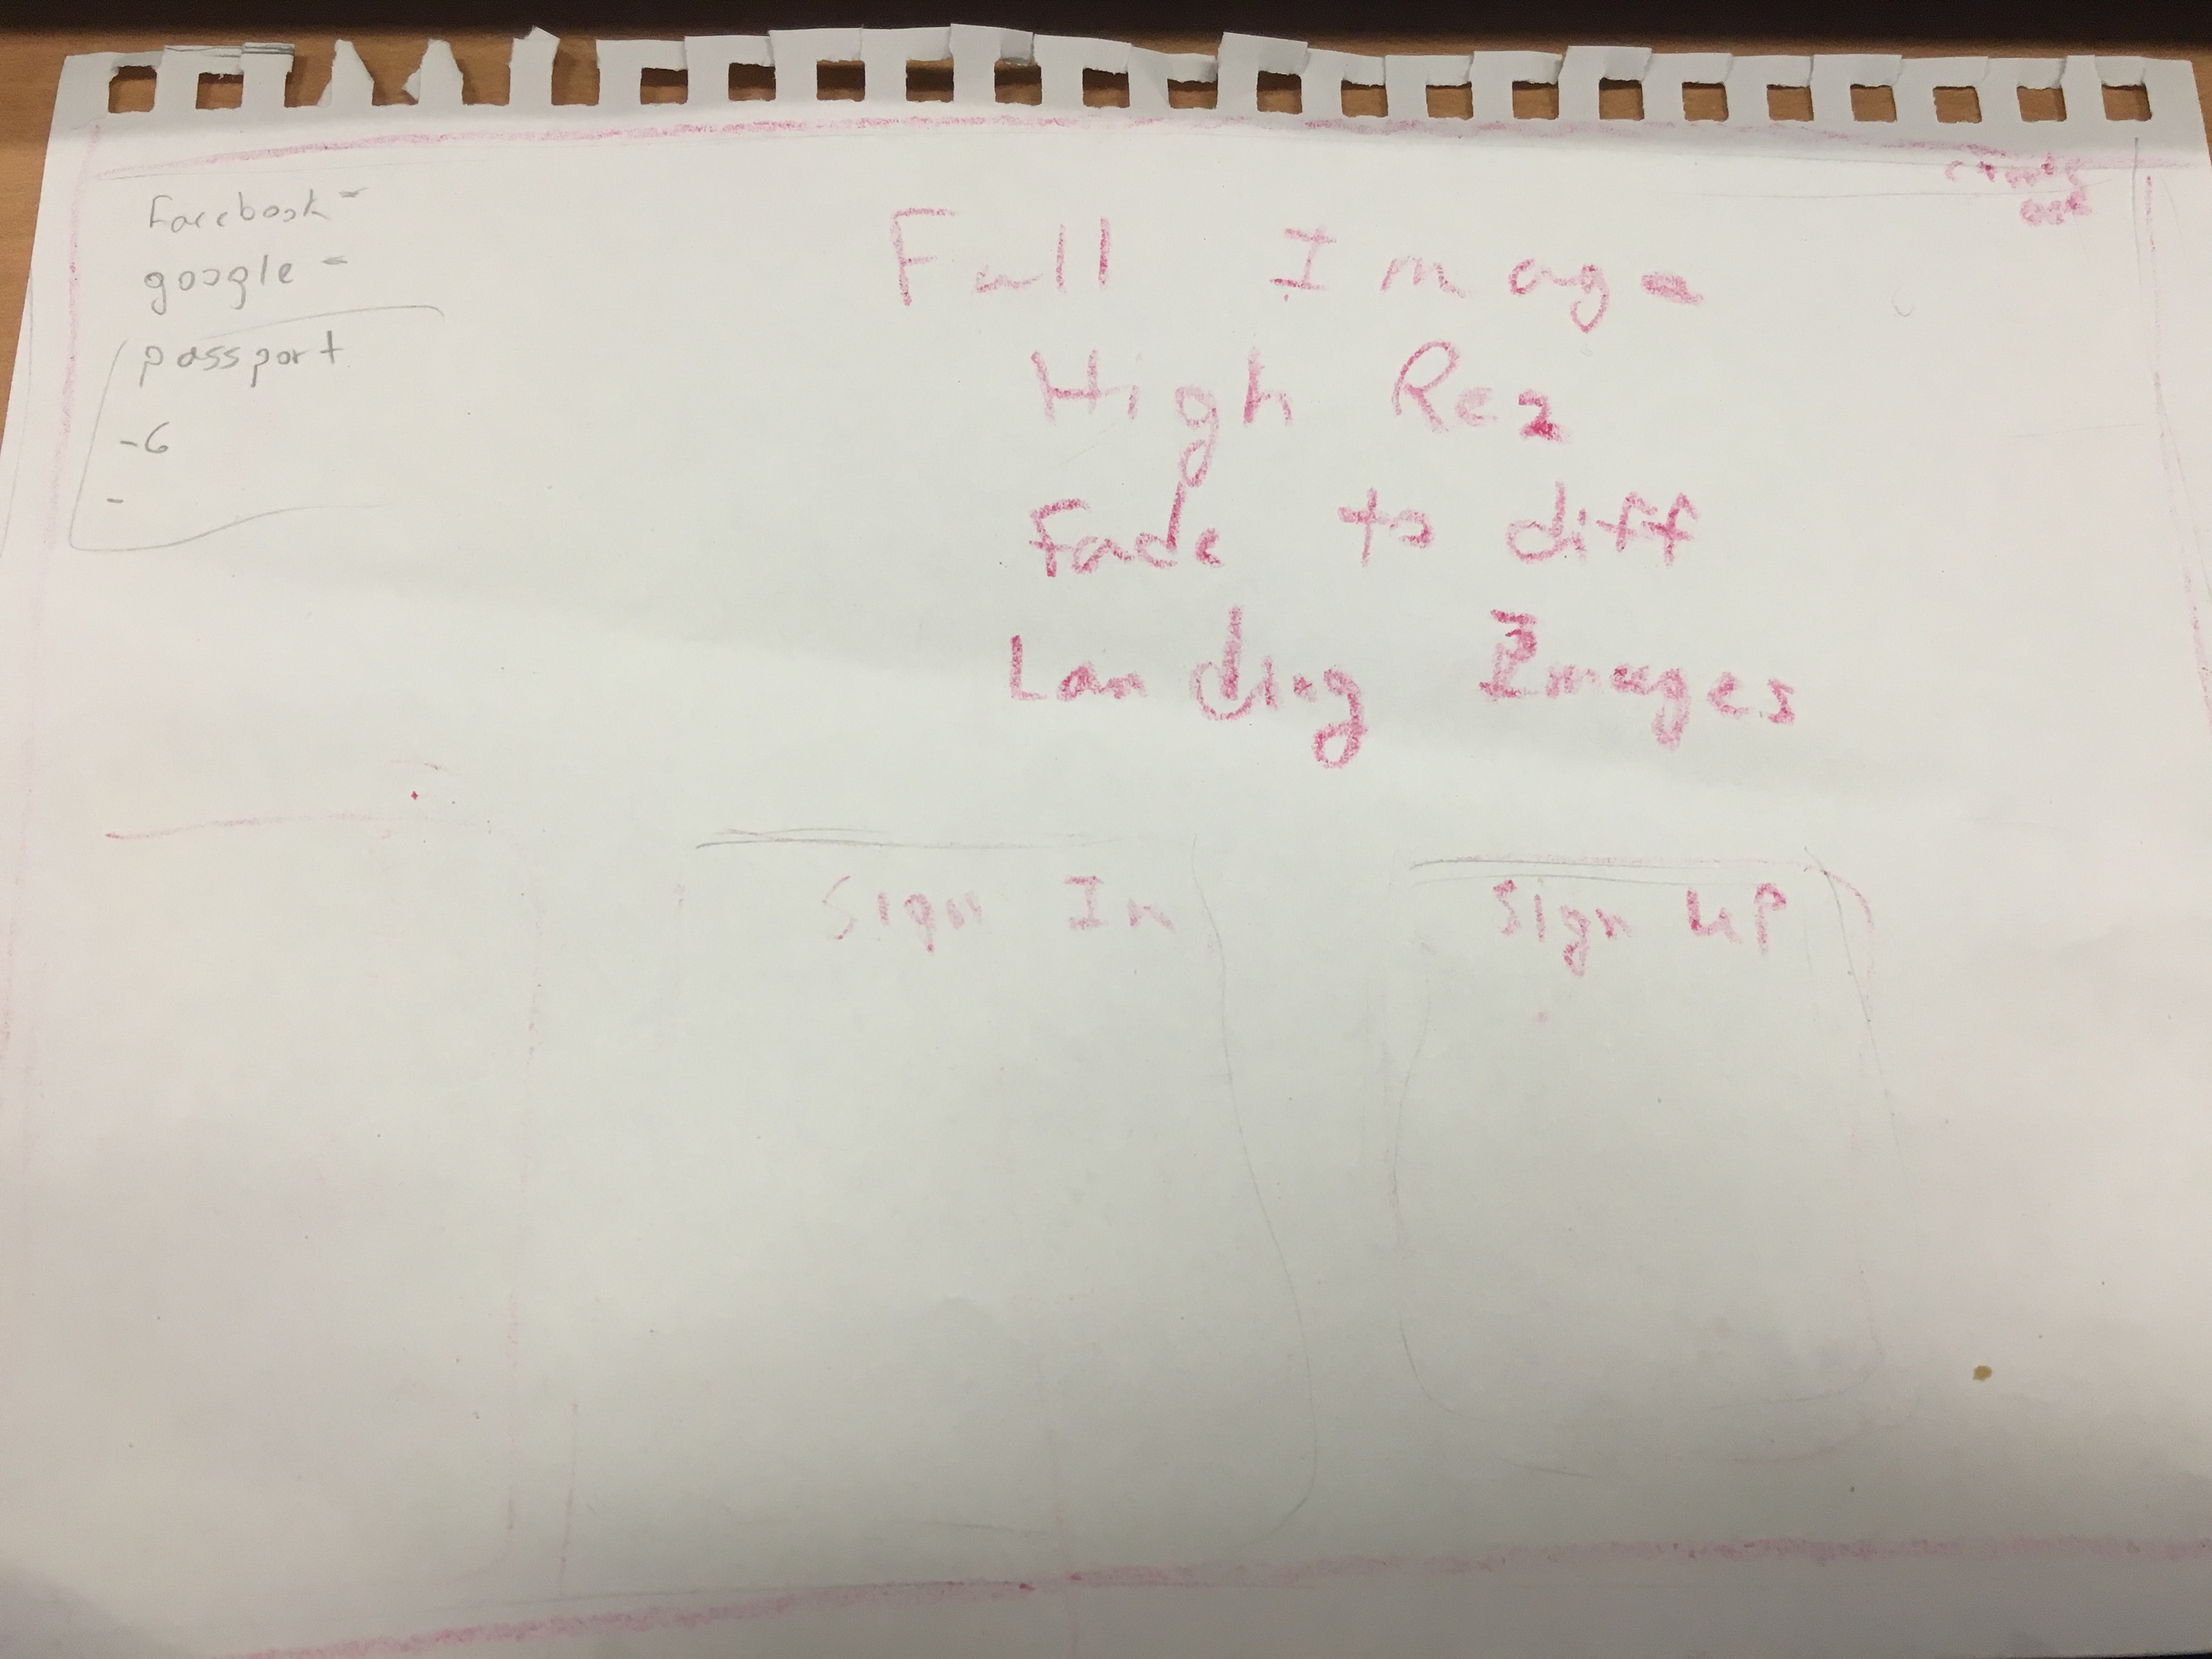 Facebook -
google -
passport
- 6
-
Full Image
High Rez
Fade to diff
Landing Images
Sign In
Sign up